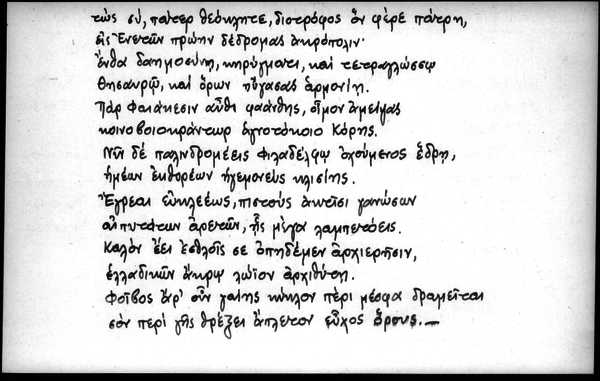 τὼς σύ, πάτερ θεόκλητε, διοτρόφος ὃν φέρε πάτρη,
εἰς Ἐνετῶν πρώην δέδρομας ἀκρόπολιν·
ἔνθα δαημοσύνῃ, κηρύγματι, καὶ τετραγλώσσῳ
θησαυρῷ, καὶ ὅρων ηὔγασας ἁρμονίῃ.
Πὰρ Φαιάκεσιν αὖθι φαάνθης, οἶμον ἀμείψας
κοινοβιοκράντωρ ἁγνοτόκοιο Κόρης.
Νῦν δὲ παλινδρομέεις Φιλαδέλφῳ ὀχούμενος ἕδρῃ,
ἡμέων ἐκθορέων ἡγεμονεὺς κλισίης.
Ἔγρεαι εὐκλεέως, πιστοὺς ἀκτῖσι γανώσων
αἰπυτάτων ἀρετῶν, ᾗς μέγα λαμπετόεις.
Καλὸν ἔει ἐσθλοῖς σε ὀπηδέμεν ἀρχιερῆσιν,
ἑλλαδικῶν ἄκρῳ λώϊον ἀρχιθύτῃ.
Φοῖβος ἄρ' οὖν γαίης κύκλον πέρι μέσφα δραμεῖται
σὸν περὶ γῆς θρέξει ἄπλετον εὖχος ὅρους.—